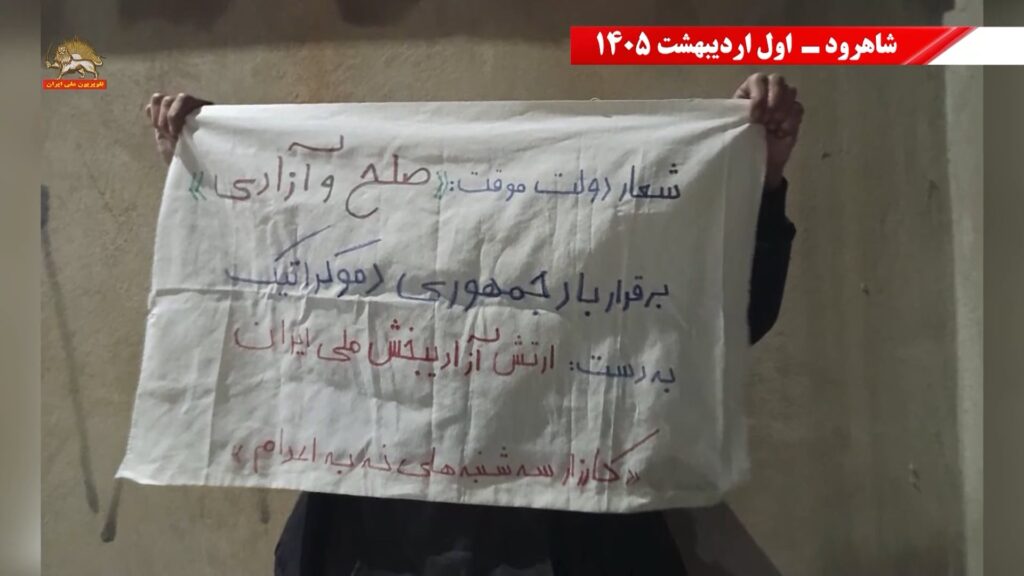 شاهرود ــ اول اردیبهشت ۱۴۰۵
تلویزیون ملی ایران
شعار دولت موقت: «صلح و آزادی»
برقرار باد جمهوری دموکراتیک
به دست: ارتش آزادیبخش ملی ایران
«کارزار سه شنبه های نه به اعدام»